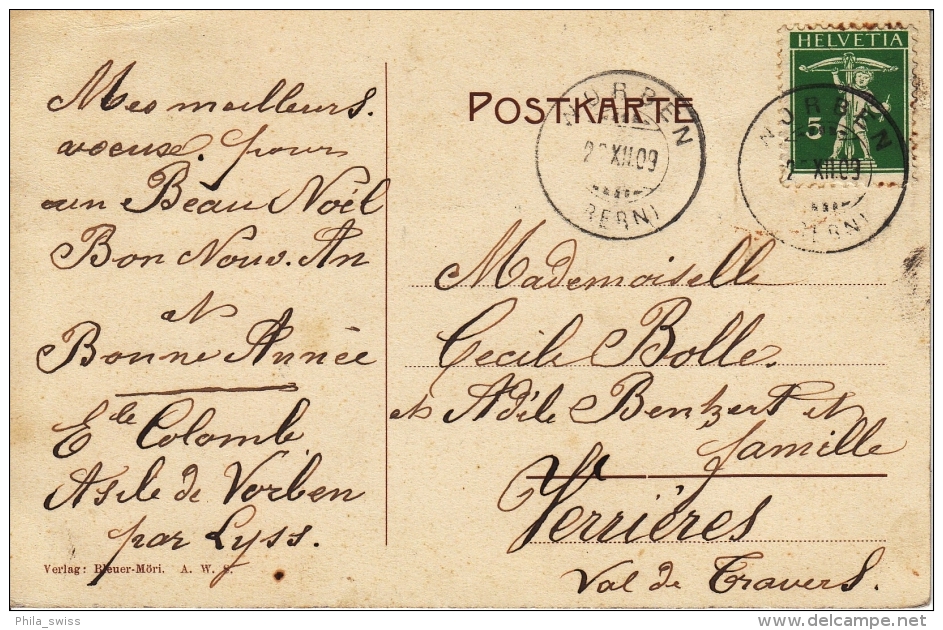 Mes meilleurs
voeux pour
un Beau Noël
Bon Nouv. An
et
Bonne Année
Ele Colomb
Asile de Worben
par Lyss.
Verlag: Bleuer-Möri. A. W. S.
POSTKARTE
WORBEN
XII.09
(BERN)
HELVETIA
5
WORBEN
XII.09
(BERN)
Mademoiselle
Cecile Bolle
et Adèle Bentzert et
famille
Verrières
Val de Travers.
Phila_swiss
delcampe.net